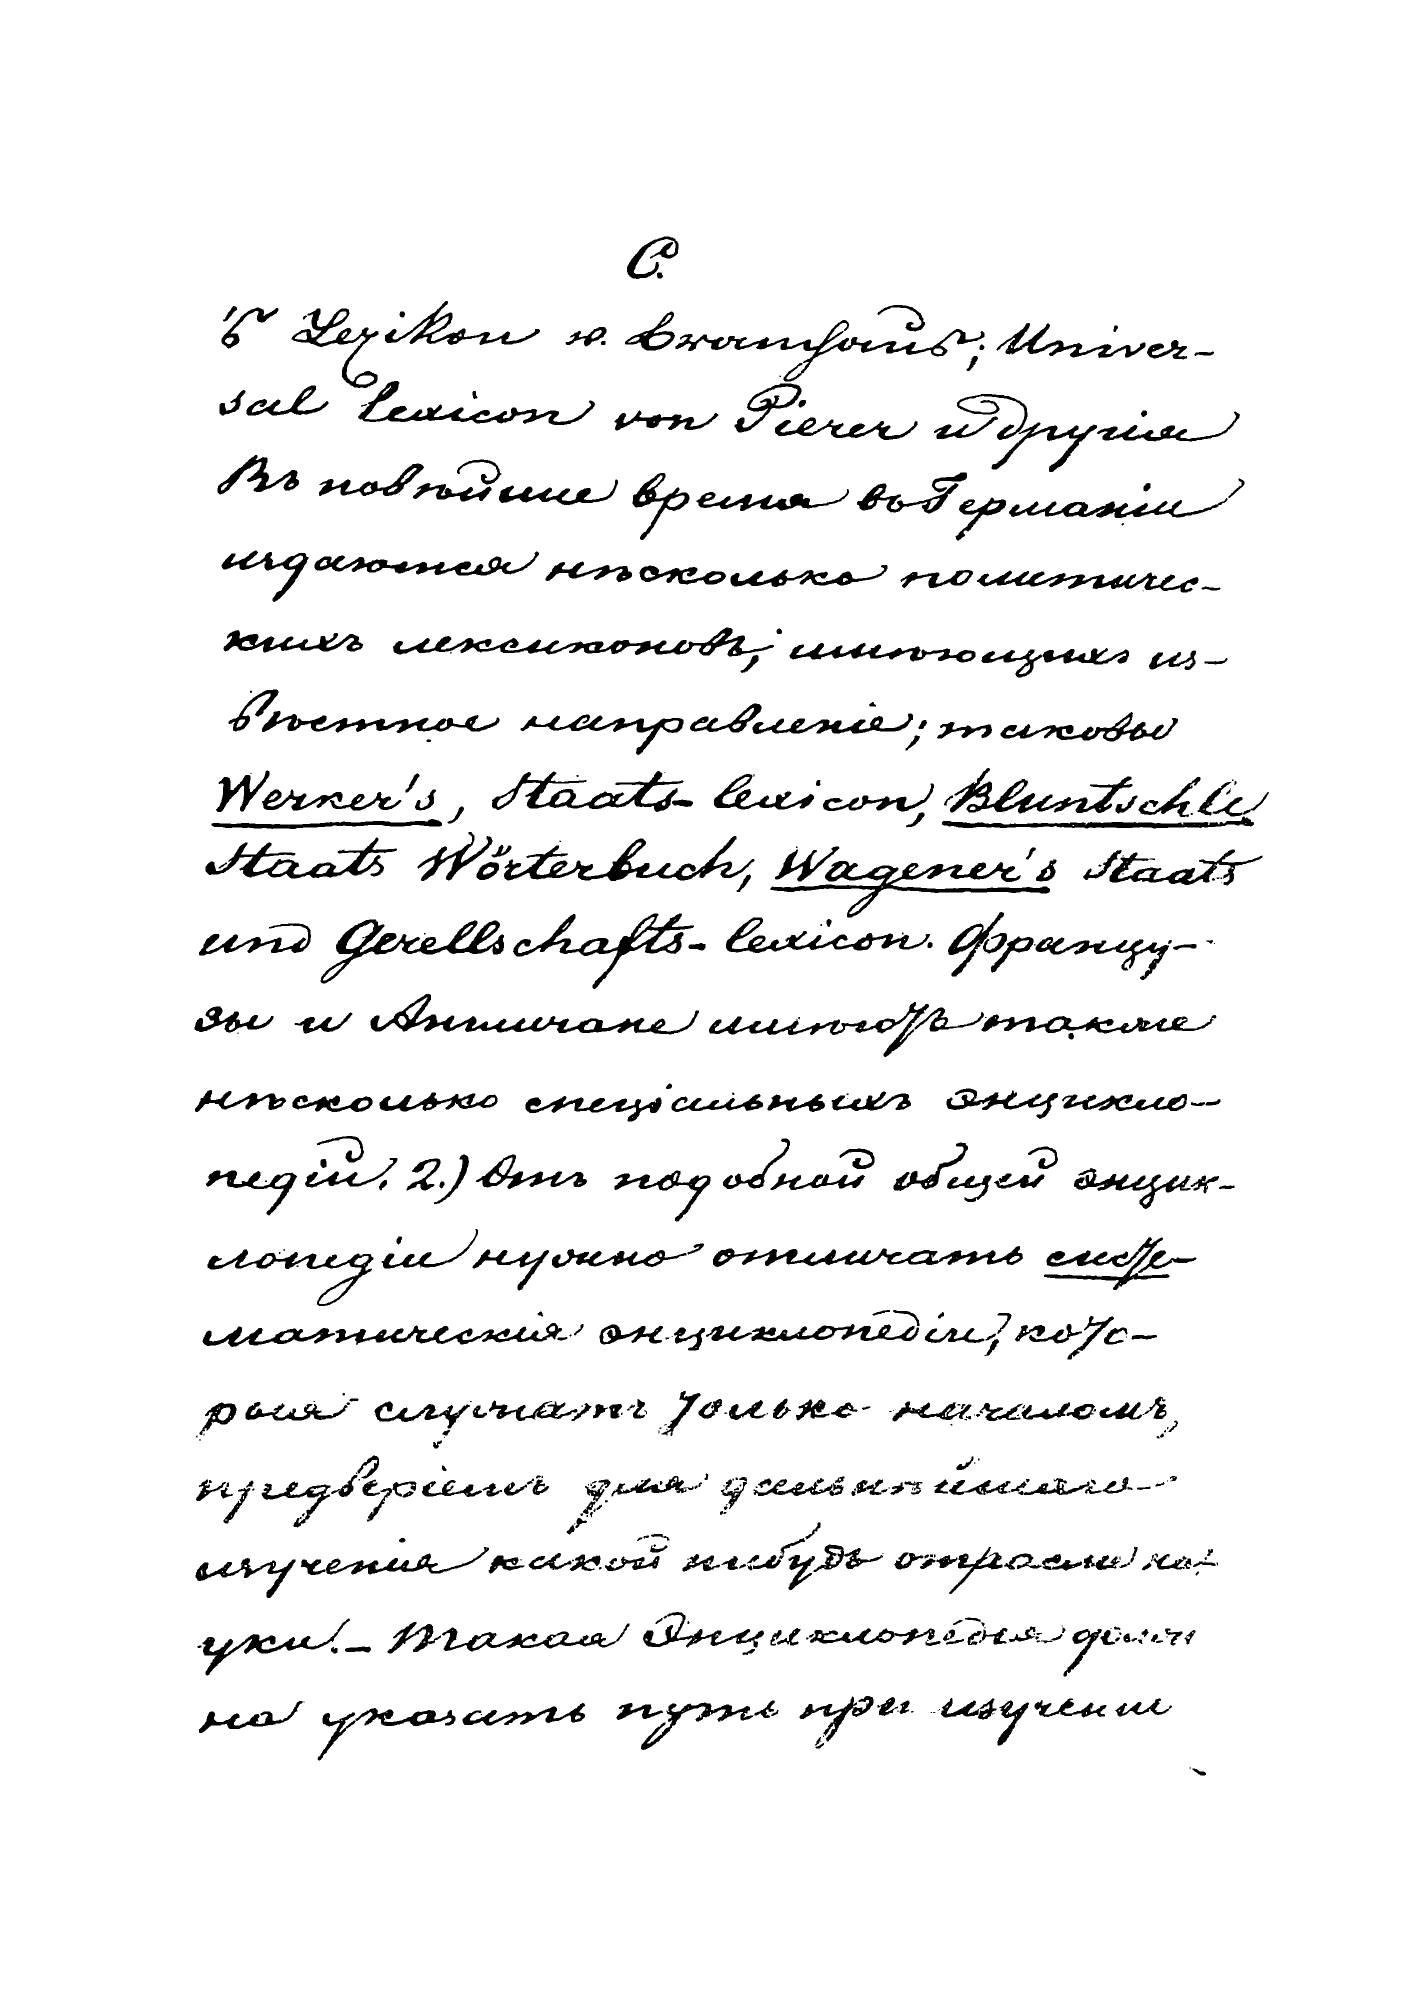 С.
's Lexikon v. Bramhaus; Univer-
sal lexicon von Pierer и другія
Въ новѣйшие время въ Германіи
издаются нѣсколько политичес-
кихъ лексиконовъ, имѣющихъ из-
вѣстное направленіе; таковы
Werker's, Staats- lexicon, Bluntschle
Staats Wörterbuch, Wagener's Staats
und Gesellschafts- lexicon. Францу-
зы и Англичане имѣютъ также
нѣсколько спеціальныхъ энцикло-
педій. 2.) Отъ подобной общей энцик-
лопедіи нужно отличать систе-
матическія энциклопедіи, кото-
рыя служатъ только началомъ,
предверіемъ для дальнѣйшаго
изученія какой нибудь отрасли на-
уки. - Такая Энциклопедія долж
на указать путь при изучении